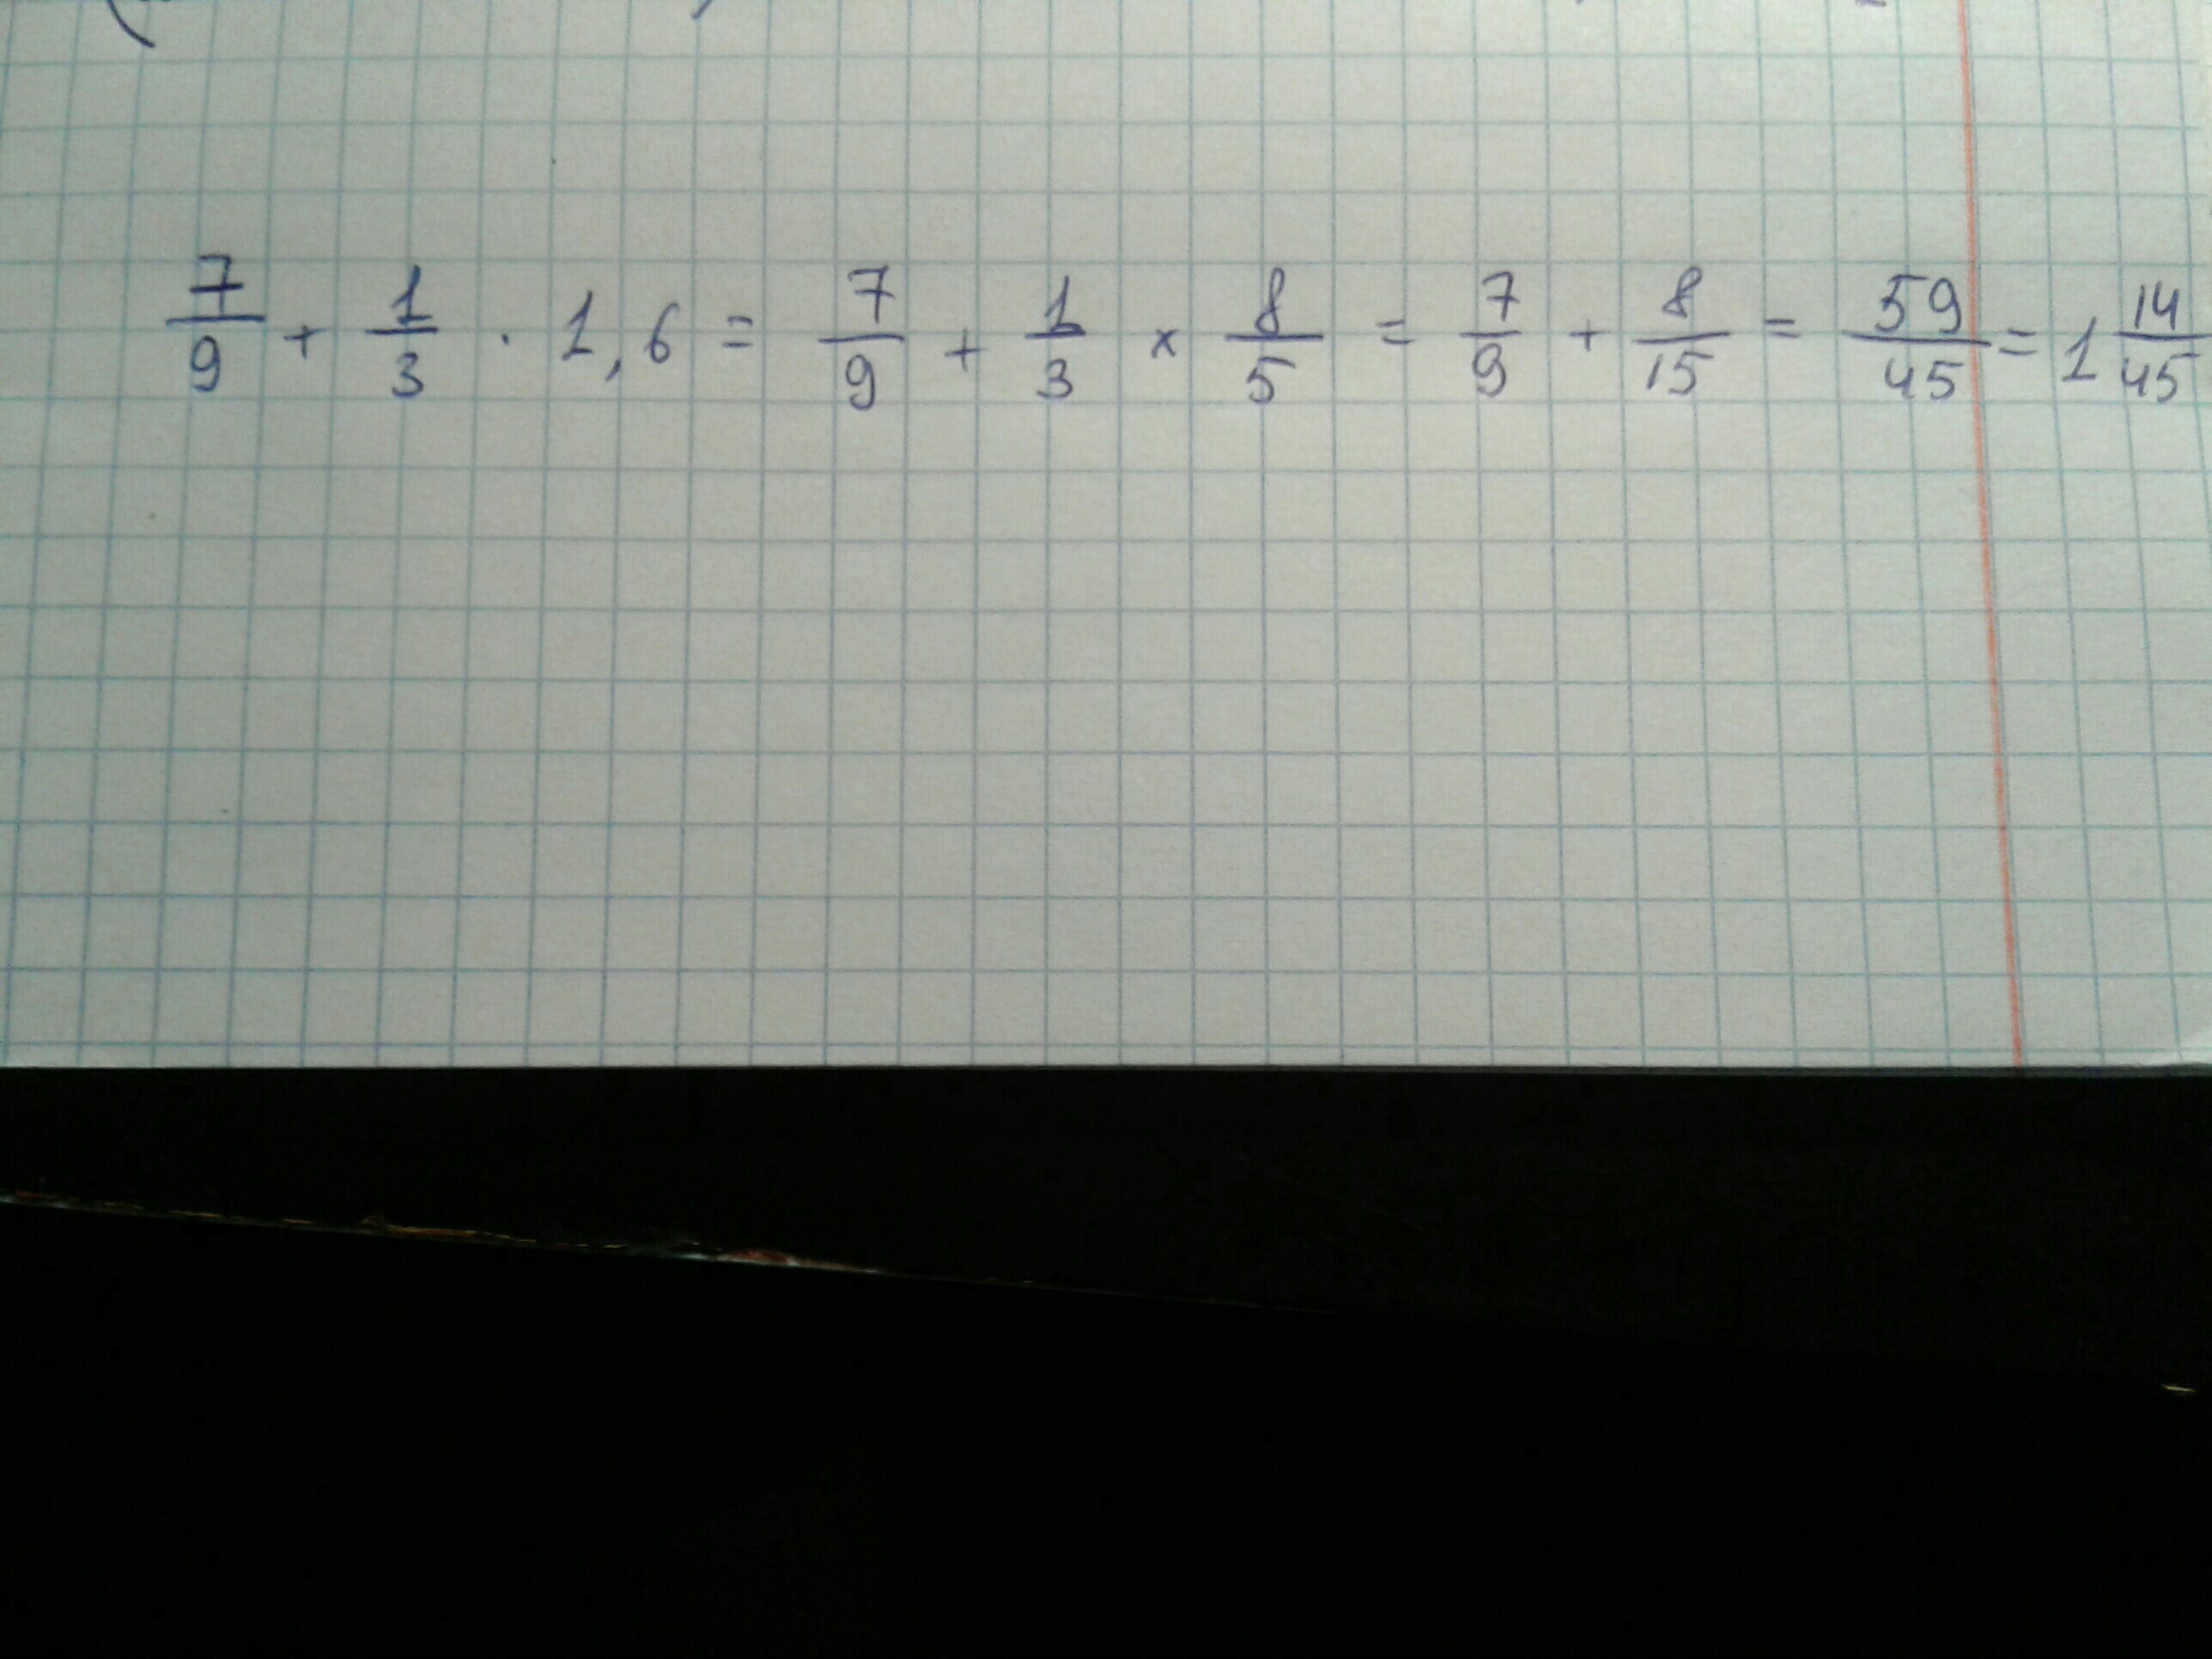 7/9 + 1/3 · 1,6 = 7/9 + 1/3 × 8/5 = 7/9 + 8/15 = 59/45 = 1 14/45